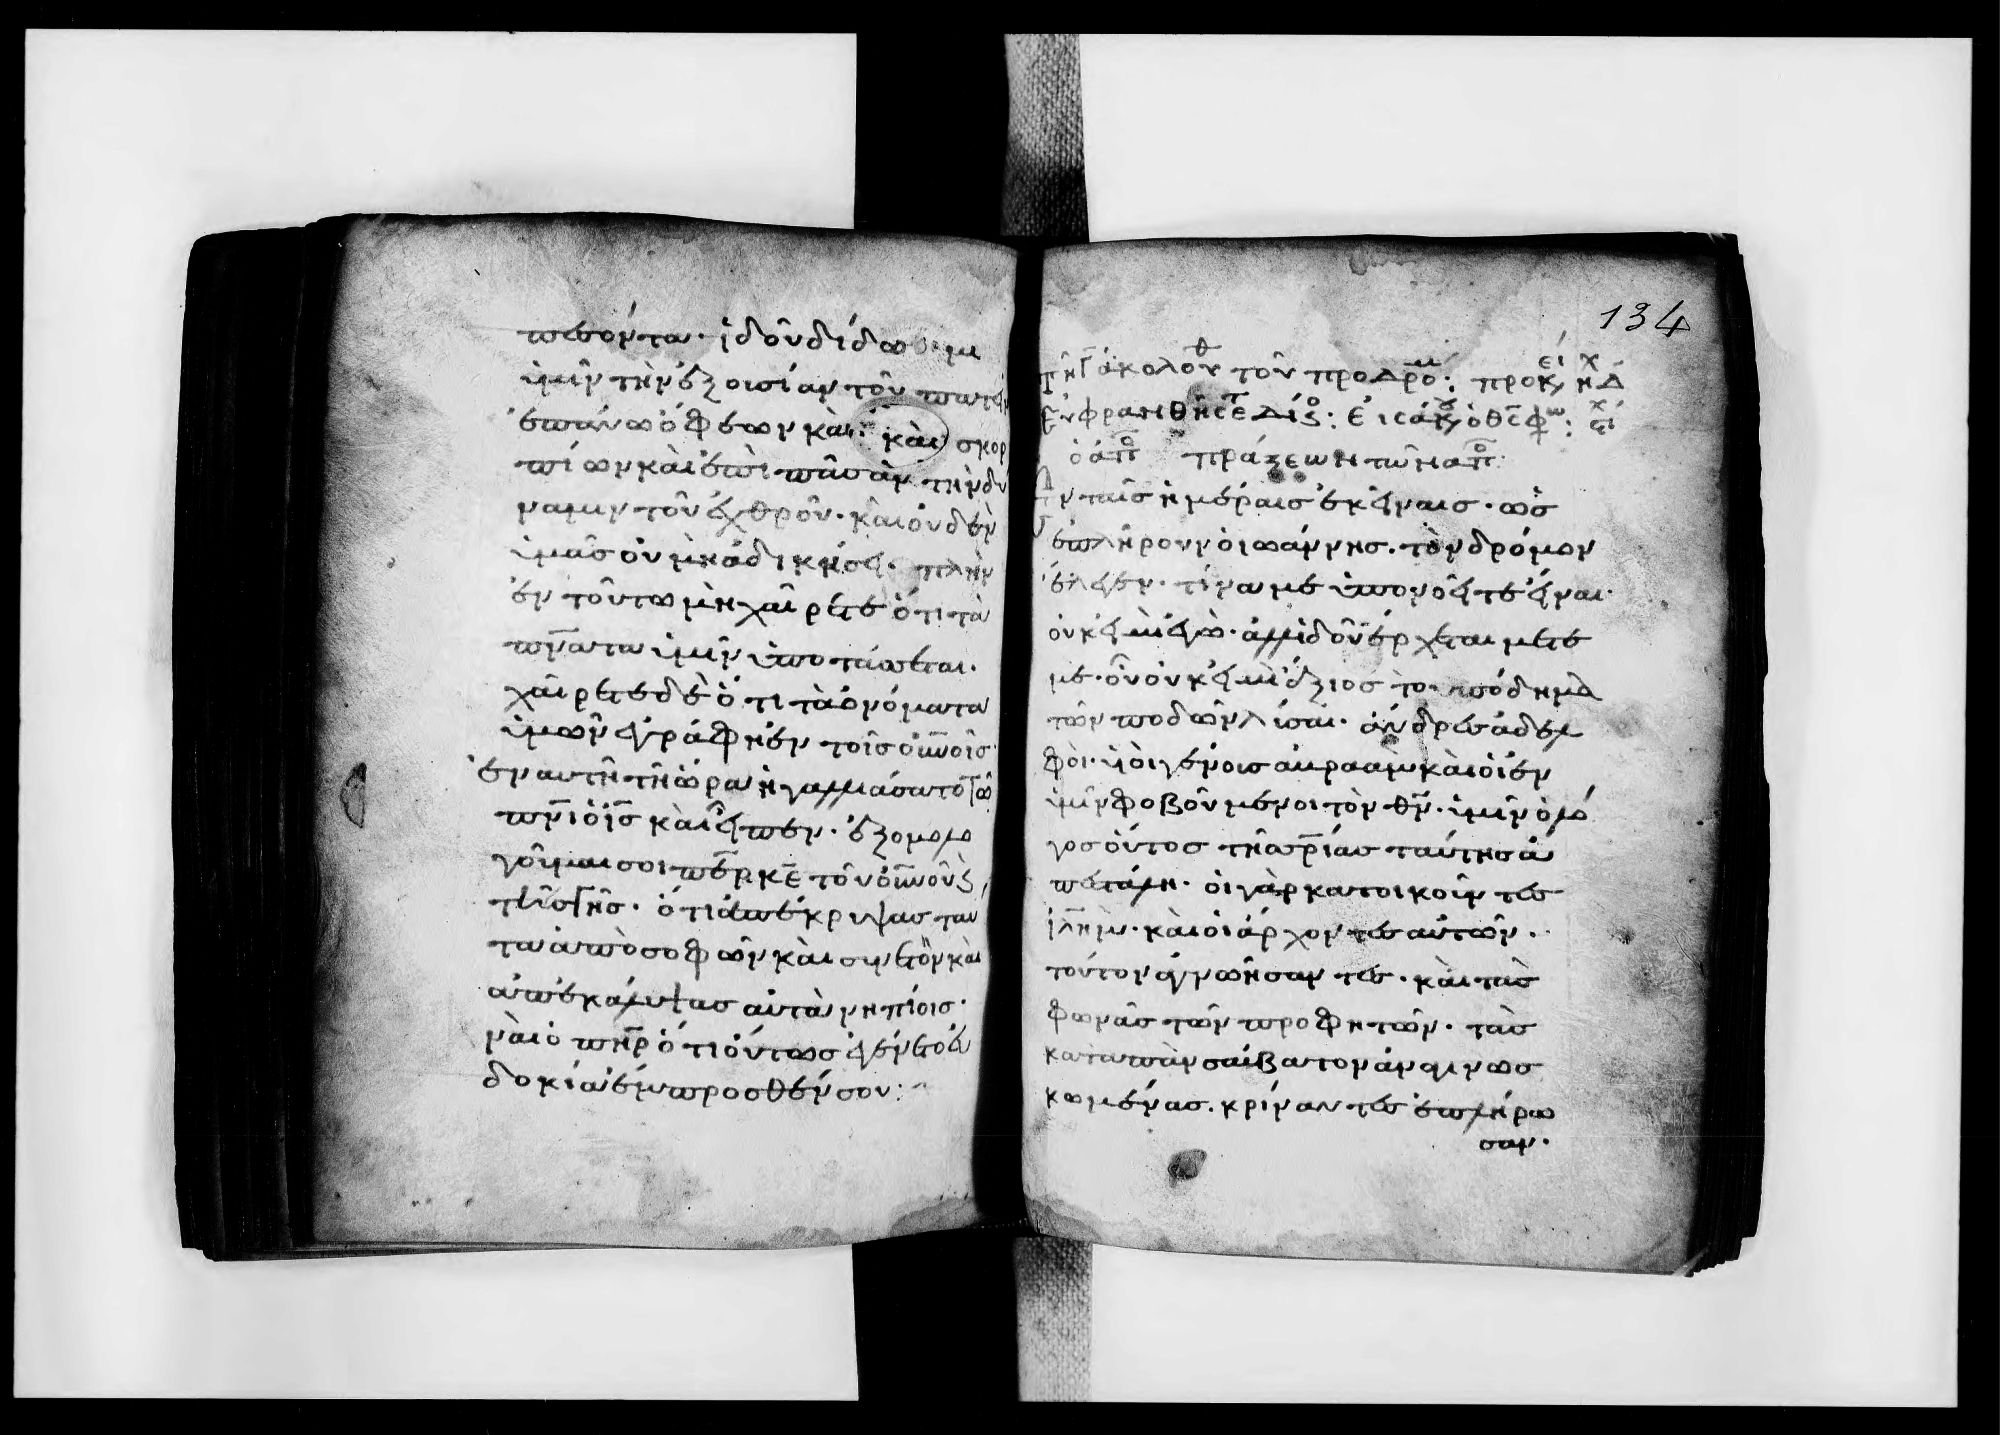 πεσόντα· ἰδοῦ δίδωμι
ὑμῖν τὴν ἐξοισίαν τοῦ πατεῖν
ἐπάνω ὄφεων καὶ καὶ σκορ
πίων καὶ ἐπὶ πᾶσαν τὴν δύ
ναμιν τοῦ ἐχθροῦ· καὶ οὐδὲν
ὑμᾶσ οὐ μὴ ἀδικήσει· πλὴν
ἐν τούτω μὴ χαίρετε ὅτι τὰ
πν̅ατα ὑμῖν ὑποτάσεται·
χαίρετε δὲ ὅτι τὰ ὀνόματα
ὑμῶν ἐγράφη ἐν τοῖσ οὐν̅οῖσ·
ἐν αυτῆ τῆ ὥρα ἠγαλλιάσατο τῶ
πν̅ι ὁ ι̅σ καὶ εἶπεν· ἐξομολο
γοῦμαι σοι πε̅ρ κ̅ε τοῦ οὐν̅οῦ κ,
τῖσ γῆσ· ὅτι ἀπέκρυψασ ταυ
τα ἀπὸ σοφῶν καὶ συνετῶν καὶ
ἀπεκάλυψασ αὐτὰ νηπίοισ·
ναὶ ὁ πη̅ρ ὅτι οὕτωσ ἐγένετο εὐ
δοκία ἔμπροσθέν σου:
134
τῆ γ ἀκολου θ τοῦ προδρο μ: προκει, ηχ δ
Εὐφρανθήσετ δίκο:
ὁ ἀπο πράξεων τῶν απο:
Ἐν ταῖσ ἡμέραισ ἐκείναισ· ὡσ
ἐπλήρουν ὁ ιωάννησ· τὸν δρόμον
ἔλεγεν· τίνα με ὑπονοεῖτε εἶναι·
οὐκ εἰμὶ ἐγὼ· ἀλλ ιδοῦ ἔρχεται μετε
με· οὗ οὐκ εἰμὶ ἄξιοσ τὸ ὑπόδημα
τῶν ποδῶν λίσαι· ἄνδρεσ ἀδελ
φοὶ· υἱοὶ γένοισ αὐραὰμ καὶ οἱ ἐν
ὑμῖν φοβοῦμενοι τὸν θν̅· ὑμῖν ὁ λό
γοσ ὁντοσ τῆσ ρ̅ίασ ταύτησ ἀ
πεστάλη· οἱ γὰρ κατοικοῦν τεσ
ἰλη̅μ· καὶ οἱ ἄρχοντεσ αὐτῶν·
τούτον ἀγνωήσαντεσ· καὶ τὰσ
φωνὰσ τῶν προφητῶν· τὰσ
κατα πὰν σάββατον ἀναγινωσ
κωμένασ· κρίναντεσ ἐπλήρω
σαν·